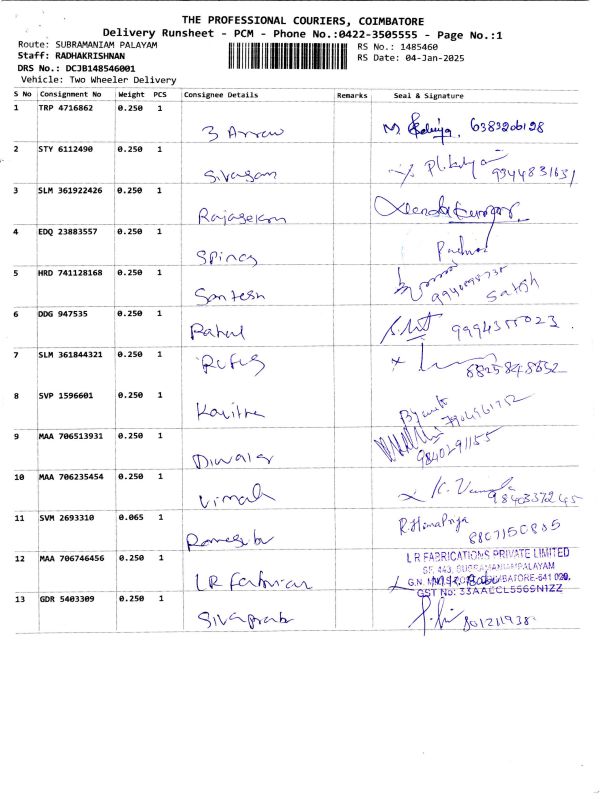 THE PROFESSIONAL COURIERS, COIMBATORE
Delivery Runsheet - PCM - Phone No.:0422-3505555 - Page No.:1
Route: SUBRAMANIAM PALAYAM
Staff: RADHAKRISHNAN
DRS No.: DCJB148546001
Vehicle: Two Wheeler Delivery
RS No.: 1485460
RS Date: 04-Jan-2025
S No Consignment No Weight PCS Consignee Details Remarks Seal & Signature
1 TRP 4716862 0.250 1 3 Arrow 6383206128
2 STY 6112490 0.250 1 Sivagam 9344831631
3 SLM 361922426 0.250 1 Rajasekan
4 EDQ 23883557 0.250 1 Spincy
5 HRD 741128168 0.250 1 Santosh Satosh
6 DDG 947535 0.250 1 Rahul
7 SLM 361844321 0.250 1 Rufus 8825848652
8 SVP 1596601 0.250 1 Kavitha
9 MAA 706513931 0.250 1 9840291155
10 MAA 706235454 0.250 1 Vimal 9840337245
11 SVM 2693310 0.065 1 R.HemaPriya
12 MAA 706746456 0.250 1 LR Fabrican
L R FABRICATIONS PRIVATE LIMITED
SF. 443, SUBRAMANIAMPALAYAM
COIMBATORE-641 029.
GST No: 33AAECL5569N1ZZ
13 GDR 5403309 0.250 1 Sivaprab